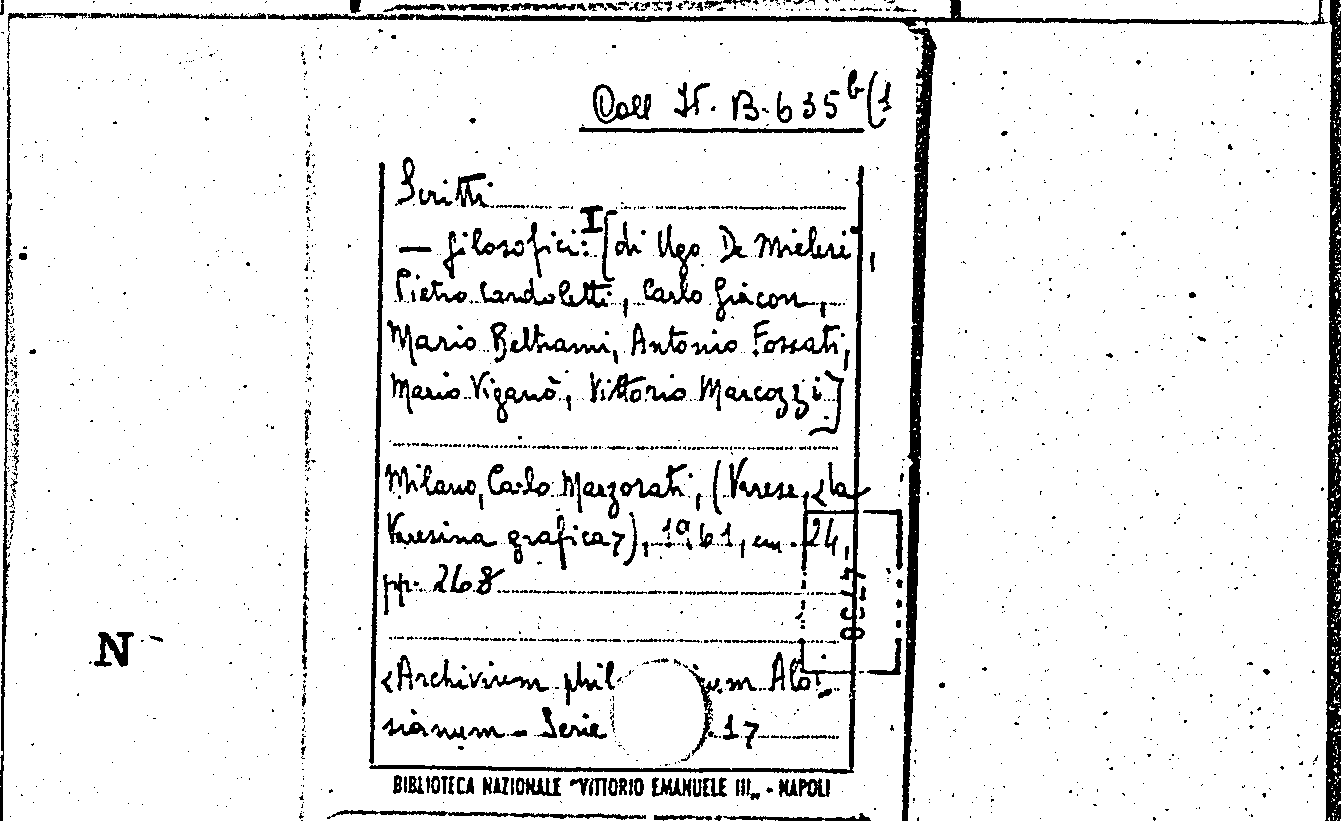 Coll It. B. 635 b(1
Scritti
— filosofici: I [di Ugo De Mieleri,
Pietro Cardoletti, Carlo Giacon,
Mario Beltrami, Antonio Fossati,
Mario Viganò, Vittorio Marcozzi]
Milano, Carlo Marzorati, (Varese, <la
Varesina grafica>), 1961, cm. 24,
pp. 268
N
<Archivium phil um Aloi-
sianum - Serie 17
BIBLIOTECA NAZIONALE "VITTORIO EMANUELE III„ - NAPOLI